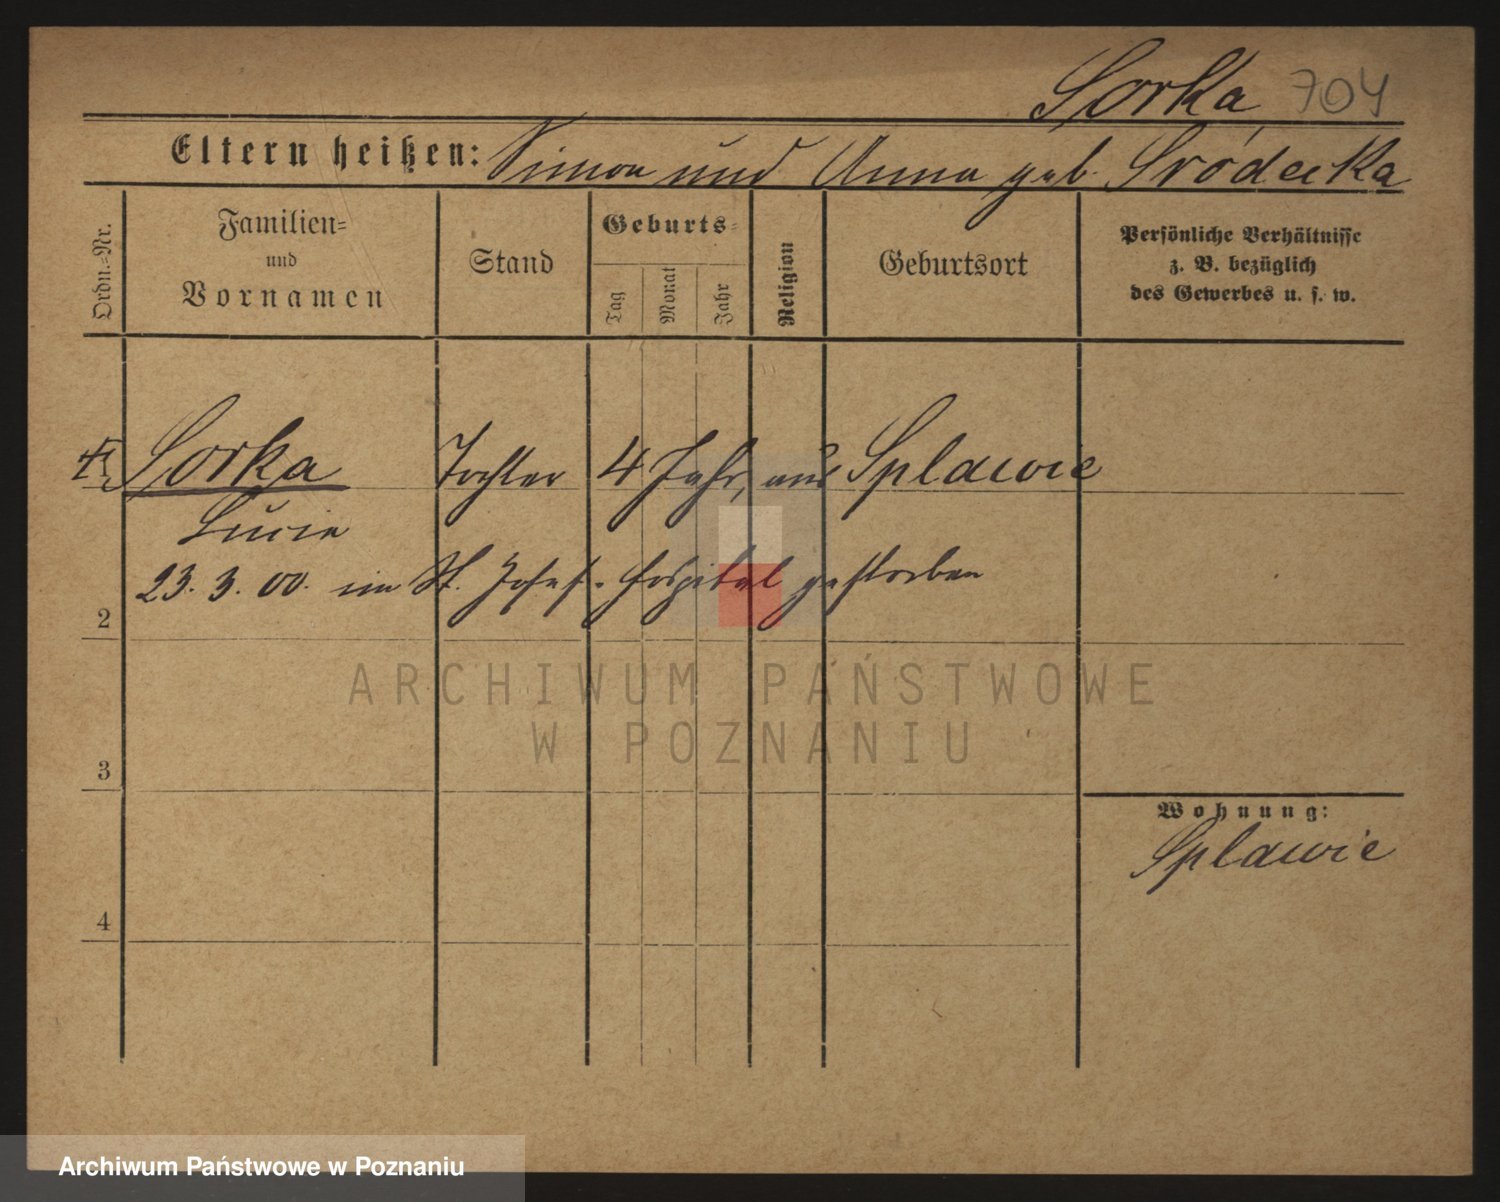 Sorka 704
Eltern heißen: Simon und Anna geb. Sródecka
Ordn.=Nr.
Familien=
und
Vornamen
Stand
Geburts=
Tag
Monat
Jahr
Religion
Geburtsort
Persönliche Verhältnisse
z. B. bezüglich
des Gewerbes u. s. w.
Sorka Tochter 4 Jahr, aus Splawie
Lucie
23. 3. 00. im St. Josef-Hospital gestorben
2
3
4
Wohnung:
Splawie
ARCHIWUM PAŃSTWOWE
W POZNANIU
Archiwum Państwowe w Poznaniu